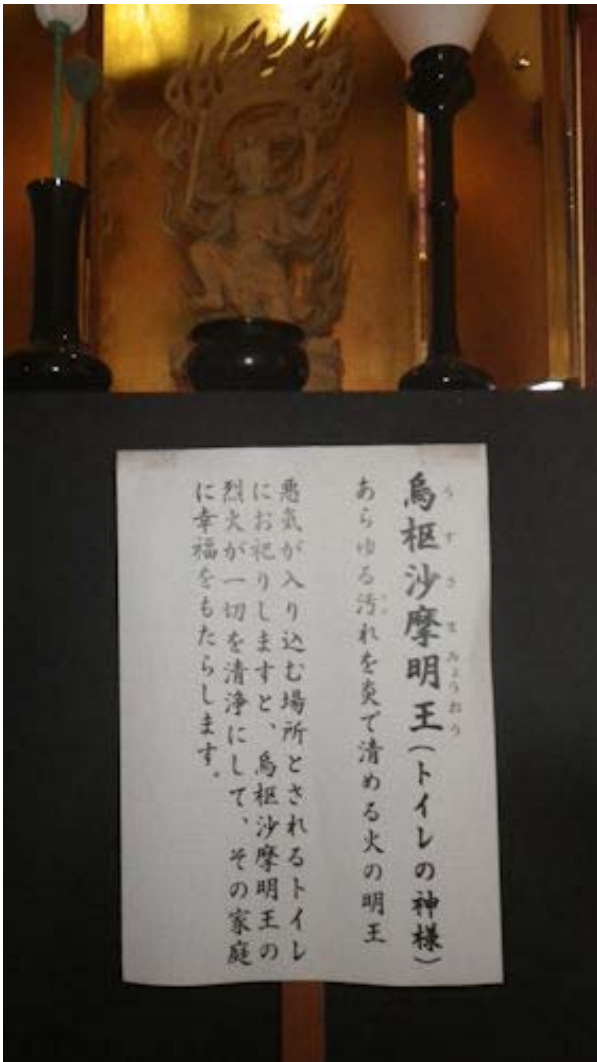 烏枢沙摩明王(トイレの神様)
うすさまみょうおう
あらゆる汚れを炎で清める火の明王
けが
悪気が入り込む場所とされるトイレ
にお祀りしますと、烏枢沙摩明王の
烈火が一切を清浄にして、その家庭
に幸福をもたらします。